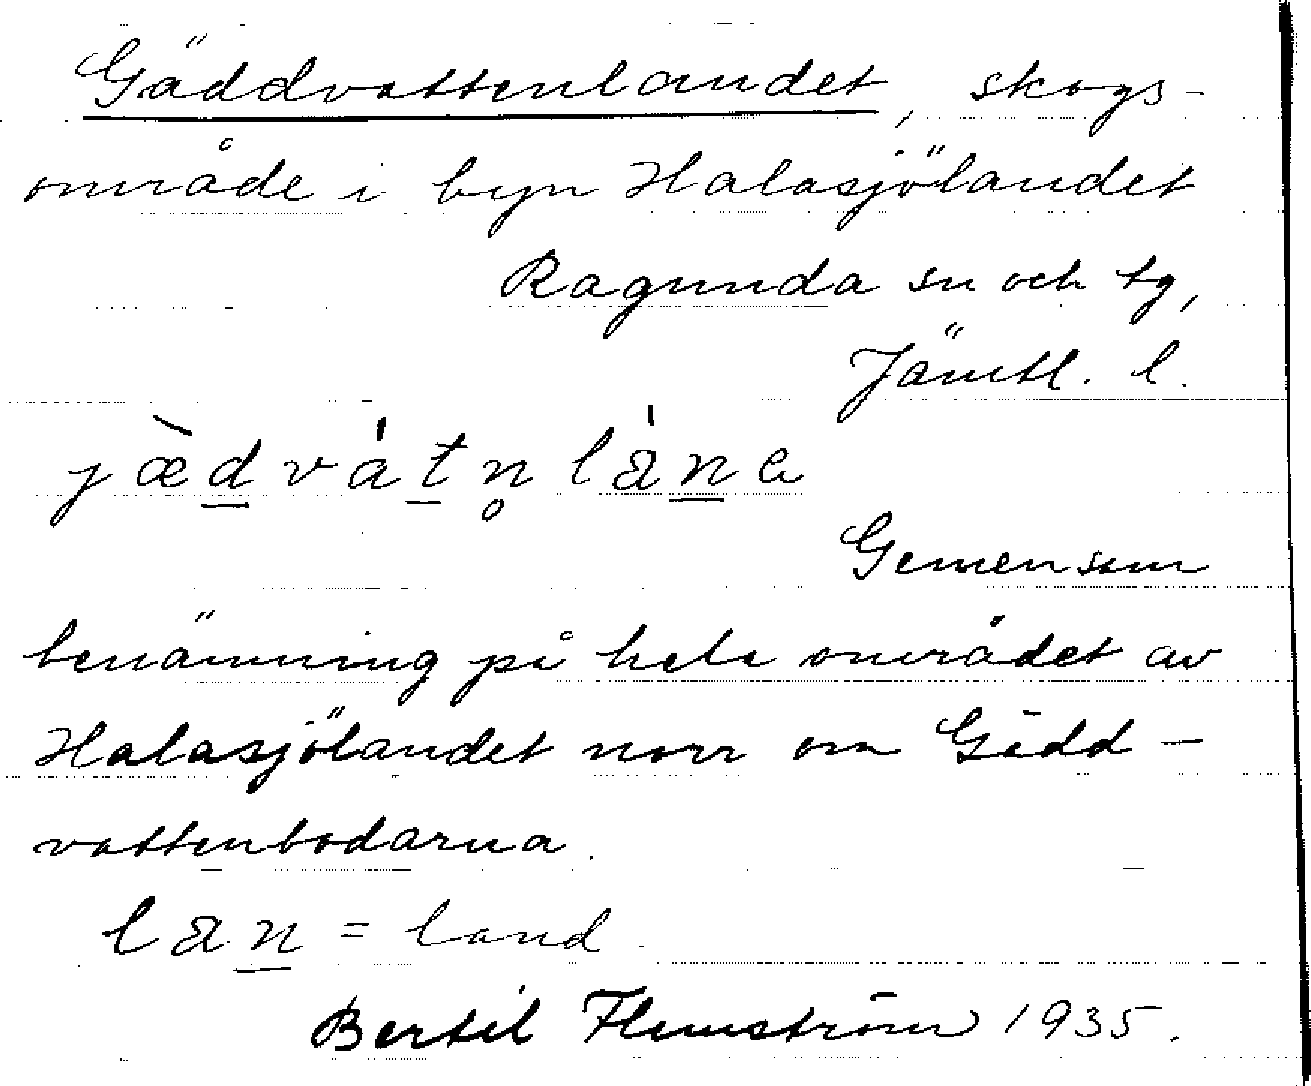 Gäddvattenlandet, skogs-
område i byn Halasjölandet
Ragunda sn och tg,
Jämtl. l.
jæ̀d̲vát̲n̥làn̲a
Gemensam
benämning på hela området av
Halasjölandet norr om Gädd-
vattenbodarna.
lan̲ = land.
Bertil Flemström 1935.